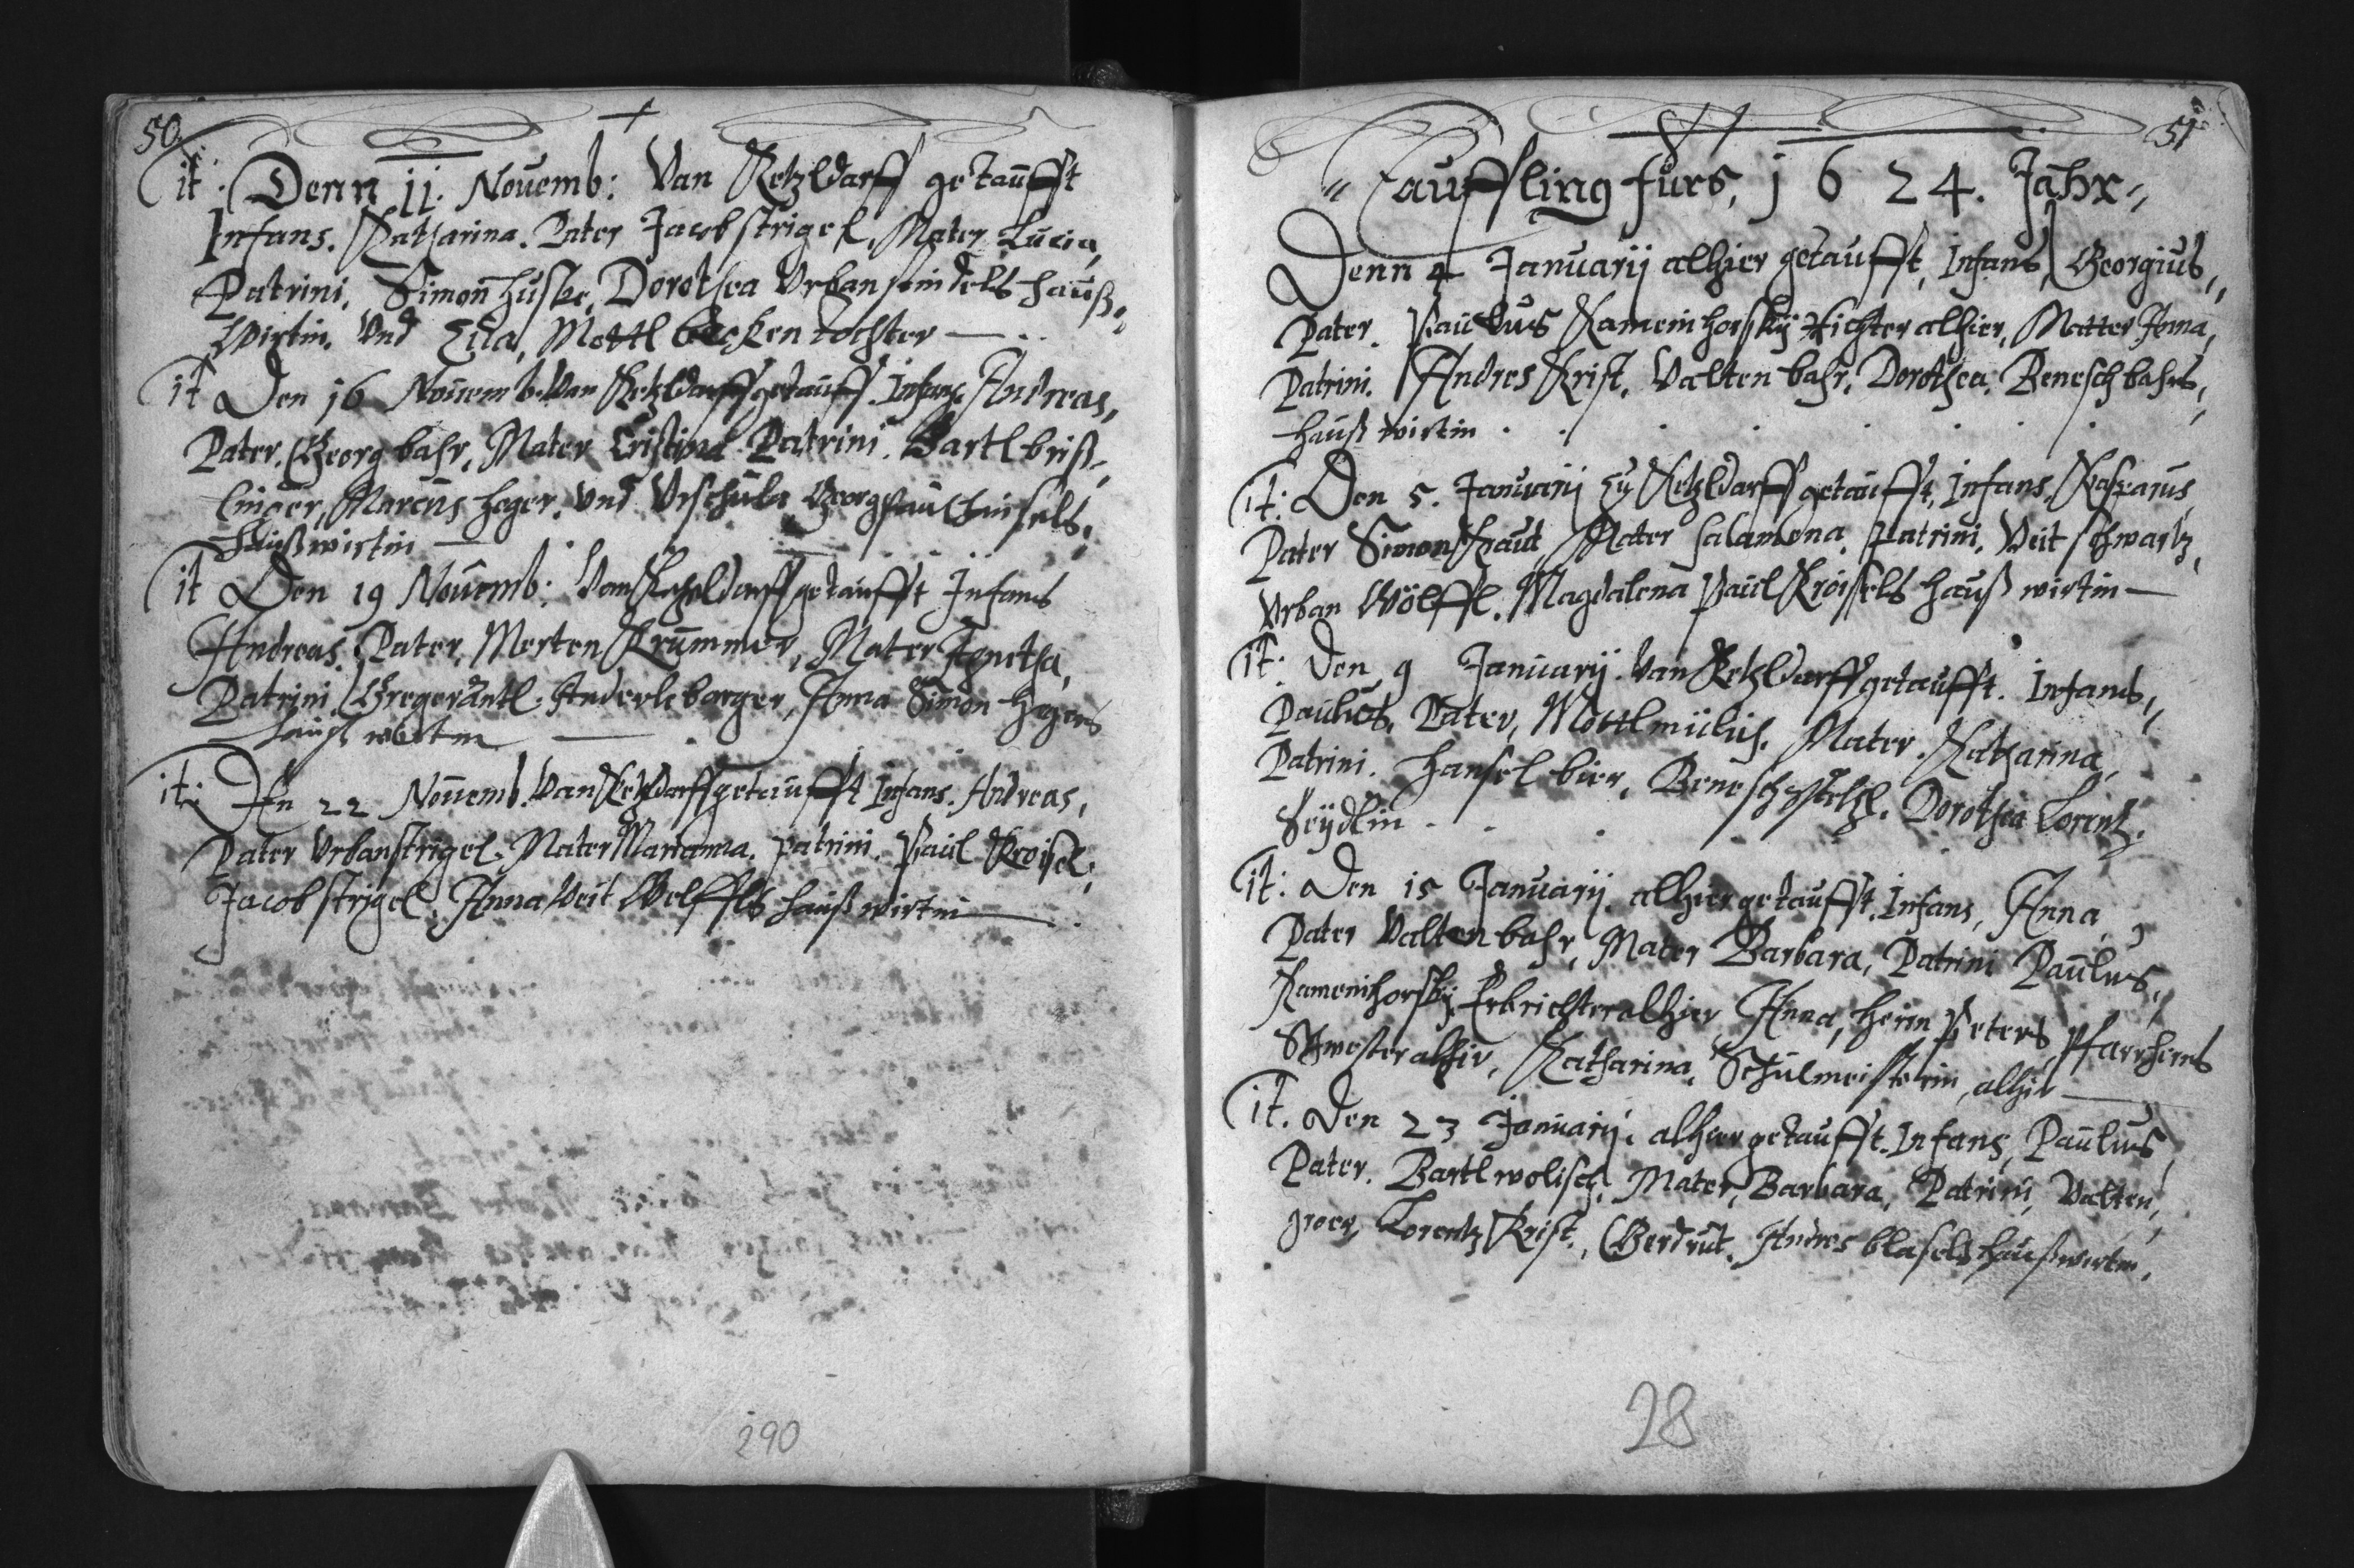 50
it: Denn 11. Novemb: Van Ketzldarff getaufft
Infans. Katharina. Pater Jacob strigel, Mater Lucia,
Patrini, Simon huske, Dorothea Urban seindels hauß,
Wirtin, Und Eva, Mettl becken tochter
it Den 16 Novemb. Van Ketzldarff getaufft Infans Andreas,
Pater, Georg bahr, Mater Cristina Patrini. Bartl briß,
linger, Marcus heger, Und Urschula Georg
haußwirtin
it Den 19 Novemb: Van Ketzeldarff getaufft Infans
Andreas, Pater, Merten Krummer, Mater Agnetha,
Patrini, Greger äntl. Anderle borger, Anna Simon hegers
haußwirtin
it: Den 22 Novemb. Van Ketzldarff getaufft Infans. Andreas,
Pater Urban strigel. Mater Marianna. patrini. Paul Kroisel,
Jacob strigel, Anna Veit Welffls haußwirtin
290
51
Tauffling furs, 1624. Jahr,,
Denn 4 Januarij alhier getaufft, Infans, Georgius,,
Pater. Paulus Kameinhorskÿ Richter alhier, Matter Anna,
Patrini. Andres Krist, Valten bahr, Dorothea, Benesch bahrs,
hauß wirtin
it: Den 5. Januarij zu Ketzldarff getaufft, Infans, Kasparus
Pater Simon Kraut, Mater Salamena, Patrini, Veit schwartz,
Urban Wölffl. Magdalena Paul Kroissels hauß wirtin
it: Den 9 Januarij. Van Ketzldarff getaufft. Infans,,
Paulus, Pater, Mottl mülich, Mater. Katharina,
Patrini. Hansel bier, Benesch Dorothea Lorentz,
Seÿdlin
it: Den 15 Januarij. alhier getaufft, Infans, Anna,
Pater Valten bahr, Mater Barbara, Patrini Paulus,,
Kameinhorskÿ, Erbrichter alhier Anna, herrn Peters Pfarrherns
Schwester alhir, Katharina, Schulmeisterin, alhir
it. Den 23 Januarij, alhier getaufft. Infans, Paulus,
Pater. Bartl wolisch, Mater, Barbara, Patrini, Valten,,
Lorentz Krist, Gerdrut, Andres blasels haußwirtin.
28